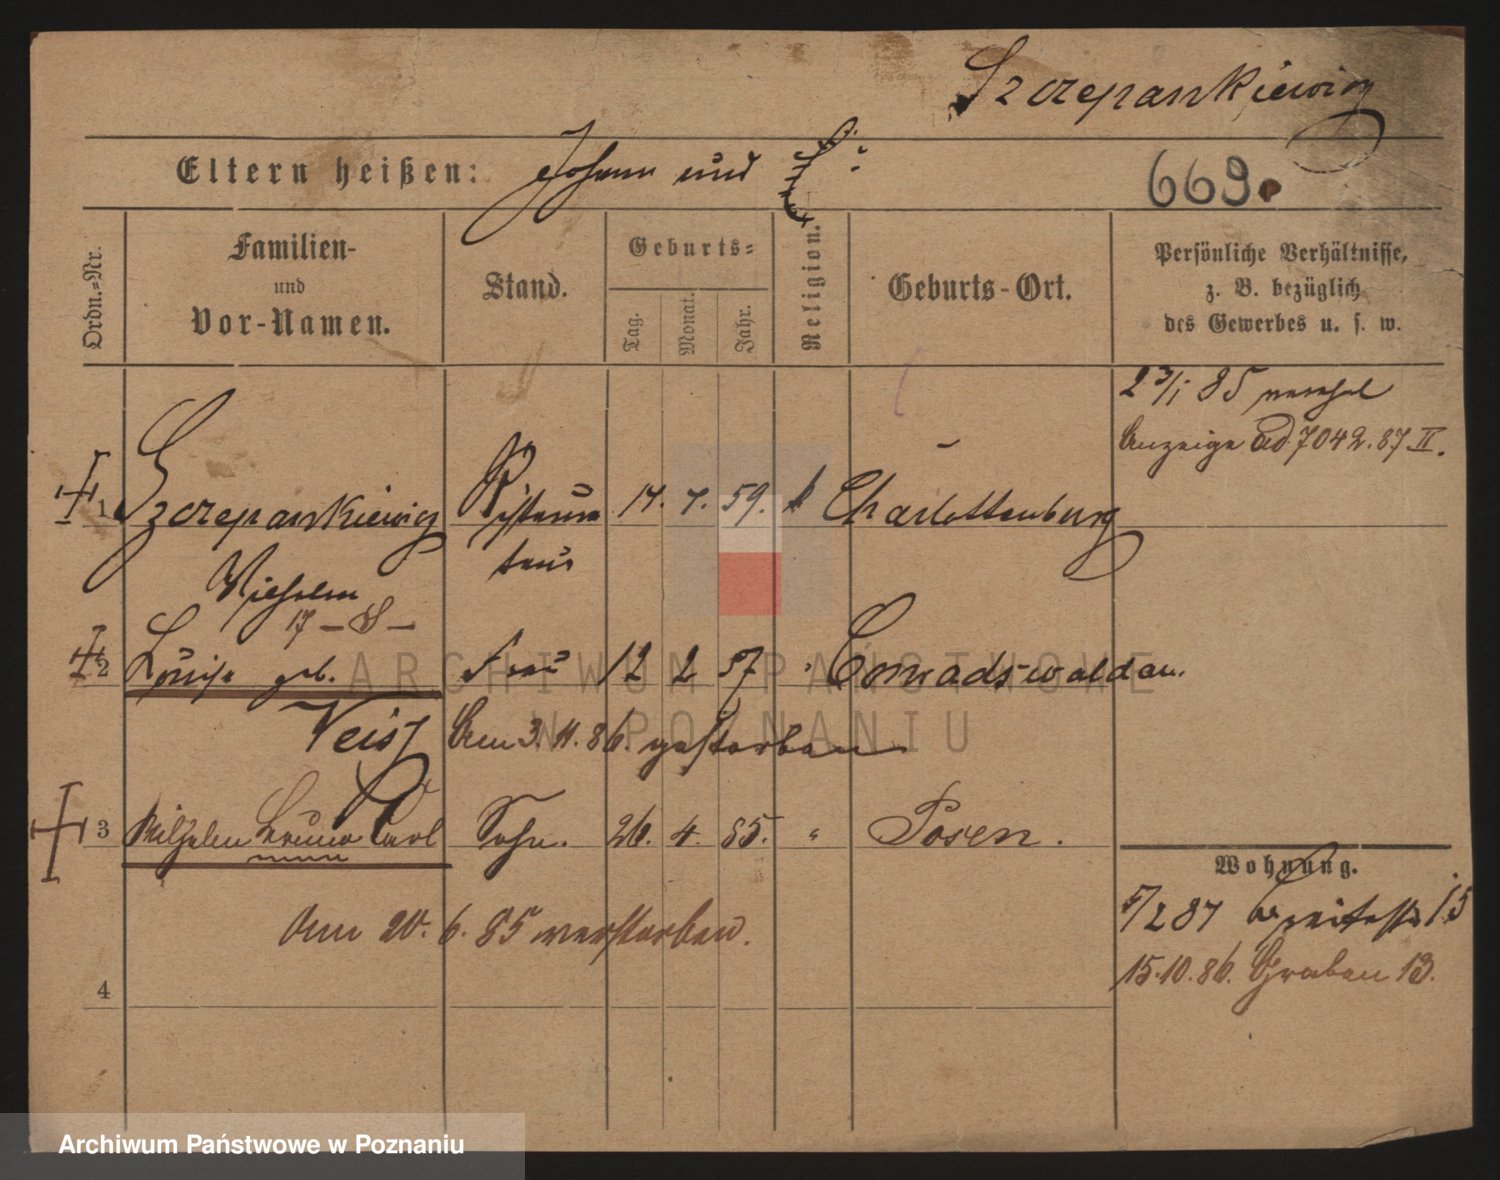 Szczepankiewicz
Eltern heißen: Johann und
669.
Ordn.=Nr.
Familien-
und
Vor-Namen.
Stand.
Geburts=
Tag.
Monat.
Jahr.
Religion.
Geburts-Ort.
Persönliche Verhältnisse,
z. B. bezüglich
des Gewerbes u. s. w.
Anzeige ad. 7042. 87 II.
1 Szczepankiewicz 17. 7. 59. k Charlottenburg
Wilhelm
17 – 8 –
2 Louise geb. Frau 12 2 57 " Conradswaldau.
Am 3. 11. 86. gestorben
3 Wilhelm Bruno Carl Sohn. 26. 4. 85. " Posen.
Am 20. 6. 85 verstorben.
4
Wohnung.
5/2 87
15
15.10.86. Graben 13.
ARCHIWUM PAŃSTWOWE
W POZNANIU
Archiwum Państwowe w Poznaniu